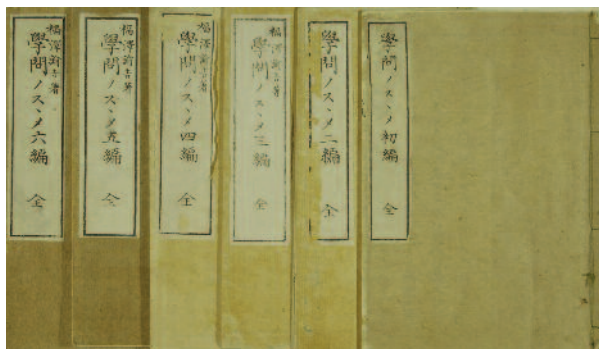 學問ノスヽメ初編 全
學問ノスヽメ二編 全
學問ノスヽメ三編 全
福澤諭吉著
學問ノスヽメ四編 全
福澤諭吉著
學問ノスヽメ五編 全
福澤諭吉著
學問ノスヽメ六編 全
福澤諭吉著